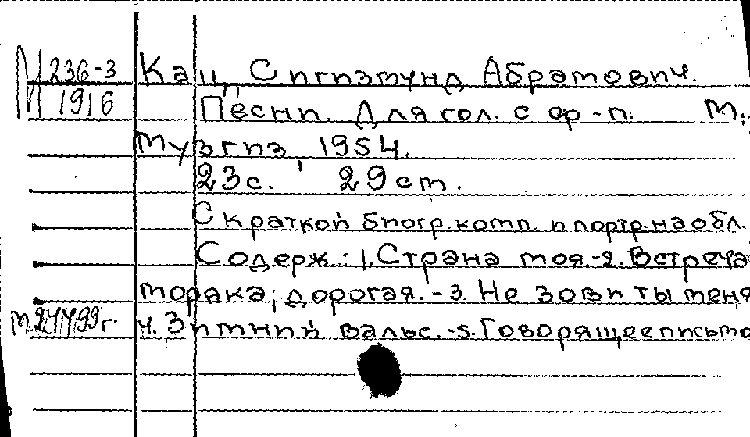 М 236-3 Кац, Сигизмунд Абрамович.
1916 Песни. Для гол. с ф-п. М.,
Музгиз, 1954.
23с. 29 см.
С краткой биогр. комп. и портр. на обл.
Содерж.: 1. Страна моя. -2. Встреча
моряка, дорогая. -3. Не зови ты меня
4. Зимний вальс. -5. Говорящее письмо